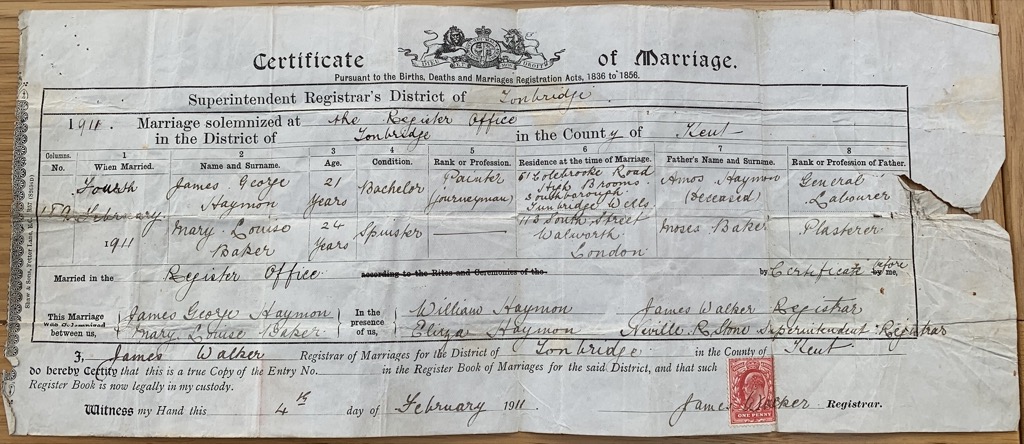 Certificate of Marriage.
Pursuant to the Births, Deaths and Marriages Registration Acts, 1836 to 1856.
Superintendent Registrar's District of Tonbridge.
1911. Marriage solemnized at the Register Office
in the District of Tonbridge in the County of Kent
Columns. 1 2 3 4 5 6 7 8
No. When Married. Name and Surname. Age. Condition. Rank or Profession. Residence at the time of Marriage. Father's Name and Surname. Rank or Profession of Father.
Fourth February 1911
James George Haymon
21 Years
Bachelor
Painter (journeyman)
61 Colebrooke Road High Brooms Southborough Tunbridge Wells
Amos Haymon (deceased)
General Labourer
Mary Louise Baker
24 Years
Spinster
113 South Street Walworth London
Moses Baker
Plasterer
Married in the Register Office according to the Rites and Ceremonies of the by Certificate before by me,
This Marriage was solemnized between us, James George Haymon Mary Louise Baker
In the presence of us, William Haymon Eliza Haymon
James Walker Registrar
Neville R. Stone Superintendent Registrar
I, James Walker Registrar of Marriages for the District of Tonbridge in the County of Kent
do hereby Certify that this is a true Copy of the Entry No. in the Register Book of Marriages for the said District, and that such
Register Book is now legally in my custody.
Witness my Hand this 4th day of February 1911. James Walker Registrar.
ONE PENNY